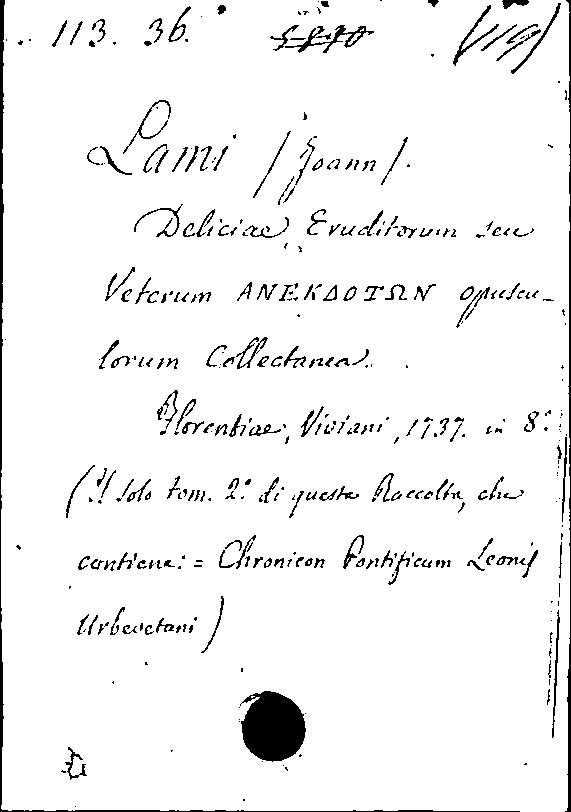 113. 36. 5870 (119)
Lami (Joann).
Deliciae Eruditorum seu
Veterum ΑΝΕΚΔΟΤΩΝ opuscu-
lorum Collectanea.
Florentiae, Viviani, 1737. in 8.°
(Il solo tom. 2.° di questa Raccolta, che
contiene: = Chronicon Pontificum Leonis
Urbevetani)